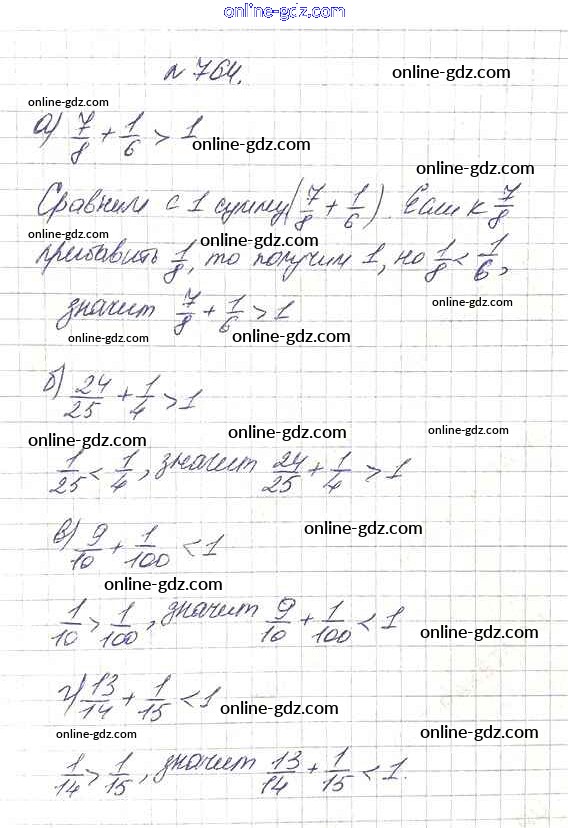 online-gdz.com
№ 764.
online-gdz.com
online-gdz.com
а) 7/8 + 1/6 > 1
online-gdz.com
online-gdz.com
Сравним с 1 сумму (7/8 + 1/6). Если к 7/8
online-gdz.com
прибавить 1/8, то получим 1, но 1/8 < 1/6,
online-gdz.com
значит 7/8 + 1/6 > 1
online-gdz.com
online-gdz.com
б) 24/25 + 1/4 > 1
online-gdz.com
online-gdz.com
online-gdz.com
1/25 < 1/4, значит 24/25 + 1/4 > 1
online-gdz.com
в) 9/10 + 1/100 < 1
online-gdz.com
1/10 > 1/100, значит 9/10 + 1/100 < 1
online-gdz.com
г) 13/14 + 1/15 < 1
online-gdz.com
online-gdz.com
online-gdz.com
1/14 > 1/15, значит 13/14 + 1/15 < 1.
online-gdz.com